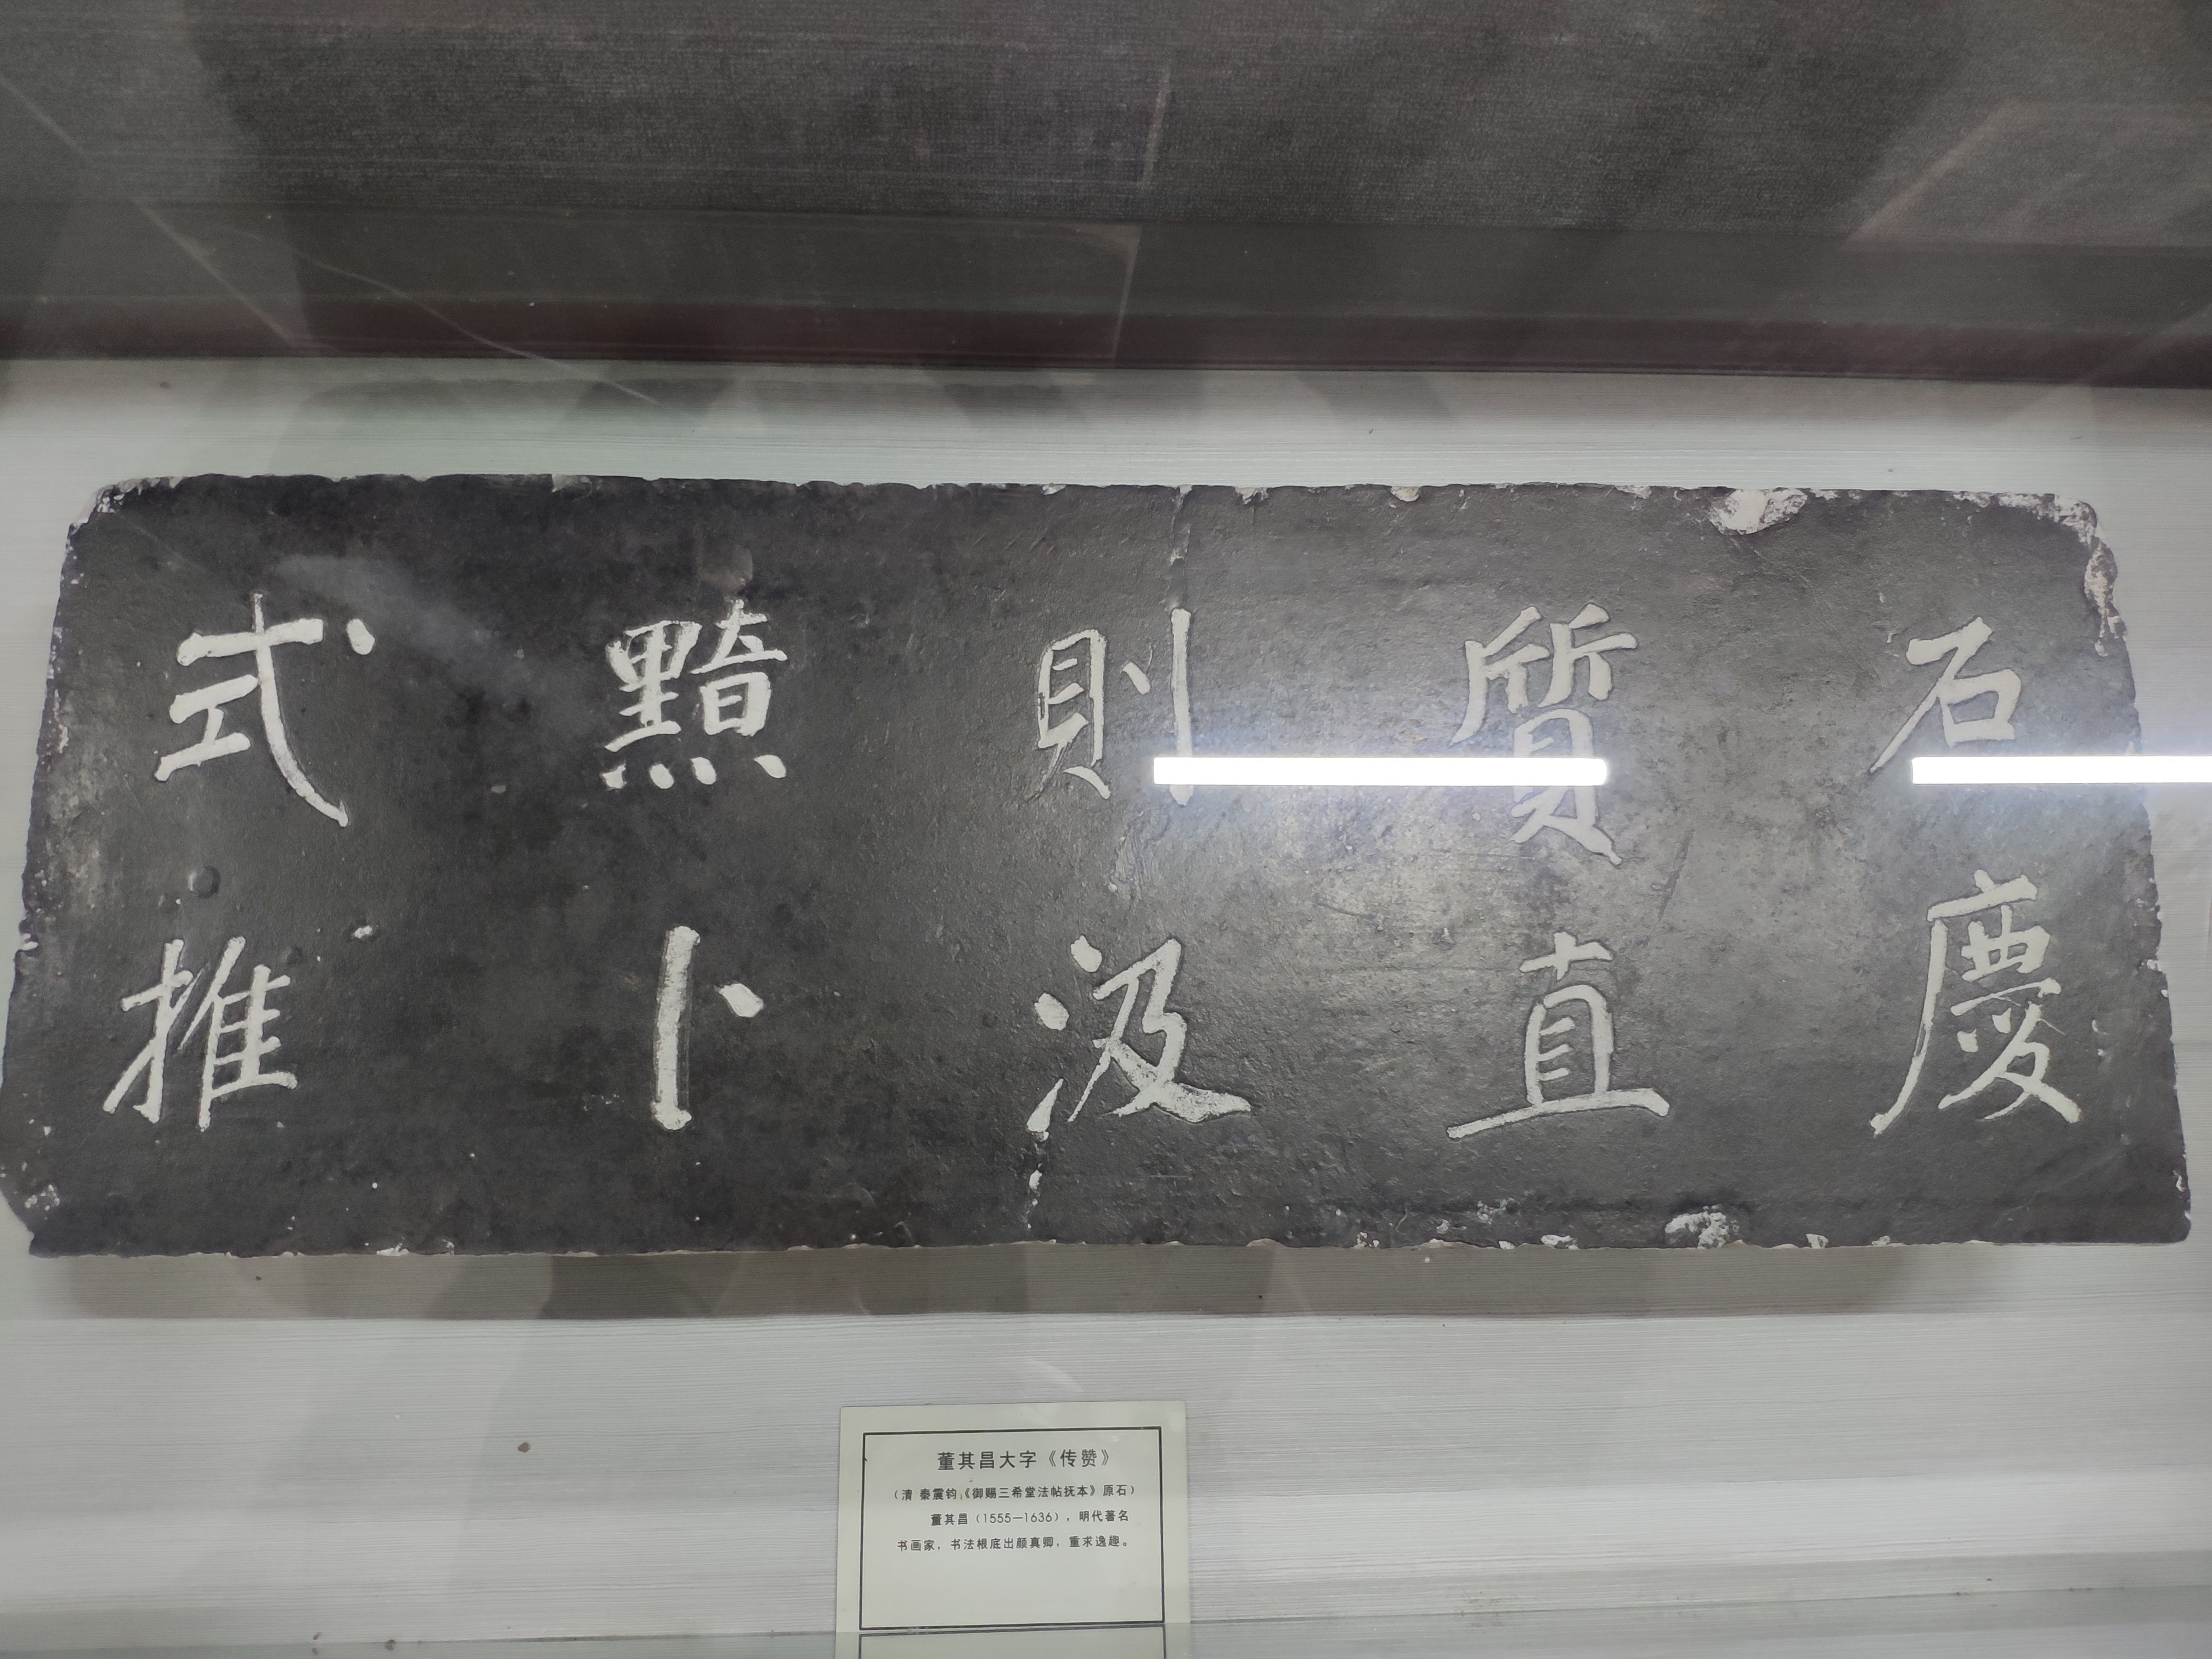 石慶
質直
則汲
黯卜
式推
董其昌大字《传赞》
（清 秦震钧《御赐三希堂法帖抚本》原石）
董其昌（1555—1636），明代著名
书画家，书法根底出颜真卿，重求逸趣。